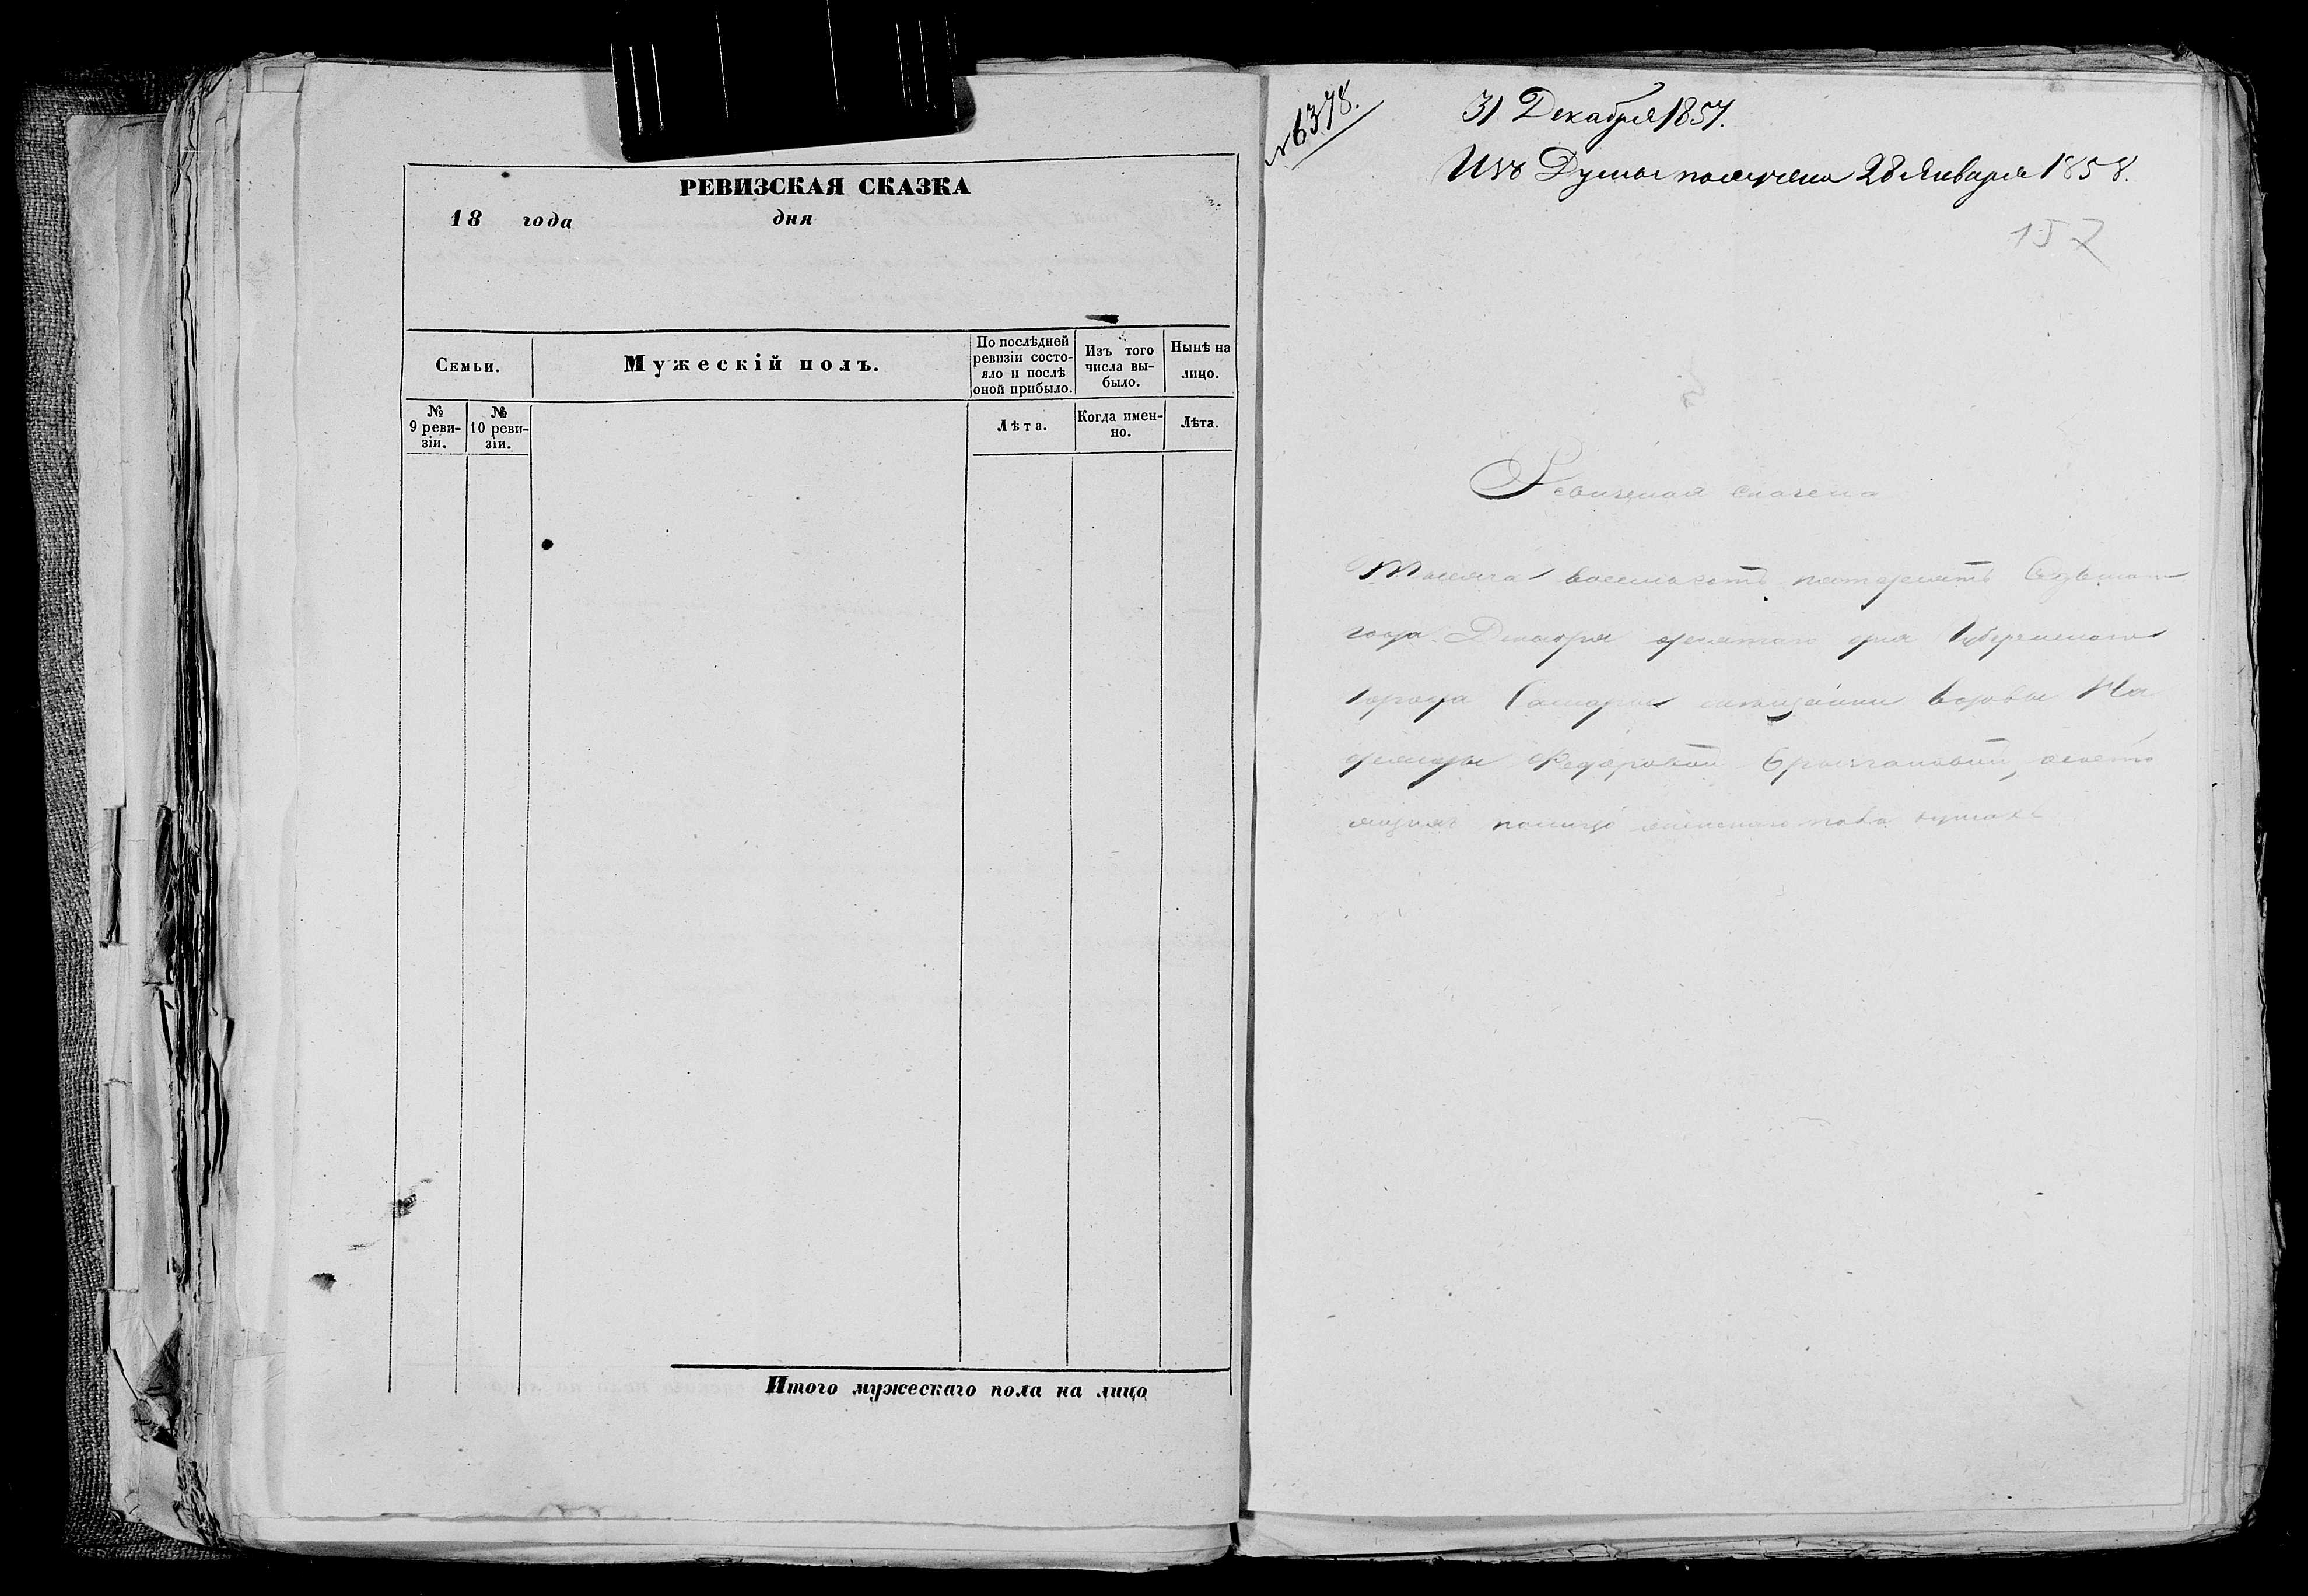 РЕВИЗСКАЯ СКАЗКА
18 года дня
Семьи.
Мужескій полъ.
По послѣдней ревизіи состо-
яло и послѣ оной прибыло.
Изъ того числа вы-
было.
Нынѣ на лицо.
№ 9 реви-
зіи.
№ 10 реви-
зіи.
Лѣта.
Когда имен-
но.
Лѣта.
Итого мужескаго пола на лицо
№ 6378.
31 Декабря 1857.
Изъ Думы получена 28 Января 1858.
157
Ревизская сказка
Тысяча восемьсотъ пятдесятъ седьмаго
года Декабря дня Губернскаго
Города Самары вдовы На
дежды Федоровой
налицо женскаго пола душахъ